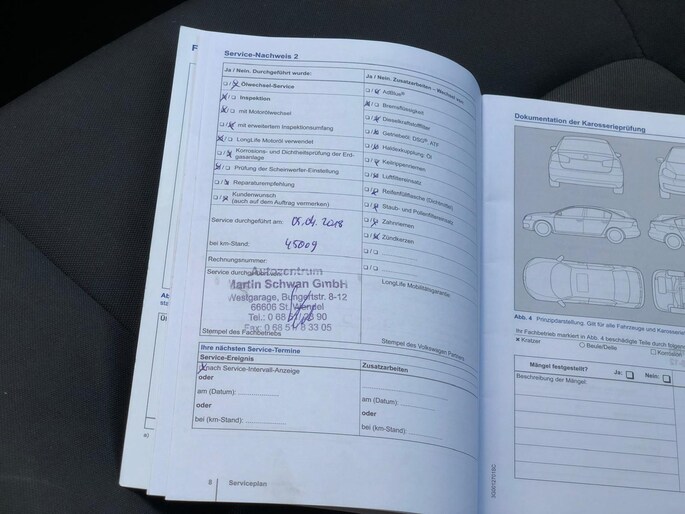 F
Service-Nachweis 2
Ja / Nein. Durchgeführt wurde:
Ölwechsel-Service
Inspektion
mit Motorölwechsel
mit erweitertem Inspektionsumfang
LongLife Motoröl verwendet
Korrosions- und Dichtheitsprüfung der Erd-
gasanlage
Prüfung der Scheinwerfer-Einstellung
Reparaturempfehlung
Kundenwunsch
(auch auf dem Auftrag vermerken)
Service durchgeführt am: 05.04.2018
bei km-Stand: 45009
Rechnungsnummer:
Service durchgeführt
Autozentrum
Martin Schwan GmbH
Westgarage, Bungertstr. 8-12
66606 St. Wendel
Tel.: 0 68 51/ 90
Fax: 0 68 51/8 33 05
Stempel des Fachbetriebs
Ja / Nein. Zusatzarbeiten – Wechsel von:
AdBlue®
Bremsflüssigkeit
Dieselkraftstofffilter
Getriebeöl: DSG®, ATF
Haldexkupplung: Öl
Keilrippenriemen
Luftfiltereinsatz
Reifenfüllflasche (Dichtmittel)
Staub- und Pollenfiltereinsatz
Zahnriemen
Zündkerzen
LongLife Mobilitätsgarantie
Stempel des Volkswagen Partners
Ihre nächsten Service-Termine
Service-Ereignis
nach Service-Intervall-Anzeige
oder
am (Datum):
oder
bei (km-Stand):
Zusatzarbeiten
am (Datum):
oder
bei (km-Stand):
8 Serviceplan
Ab
a)
Dokumentation der Karosserieprüfung
Abb. 4 Prinzipdarstellung. Gilt für alle Fahrzeuge und Karosserie
Ihr Fachbetrieb markiert in Abb. 4 beschädigte Teile durch folgen
× Kratzer
○ Beule/Delle
Korrosion
Mängel festgestellt? Ja: Nein:
Beschreibung der Mängel: